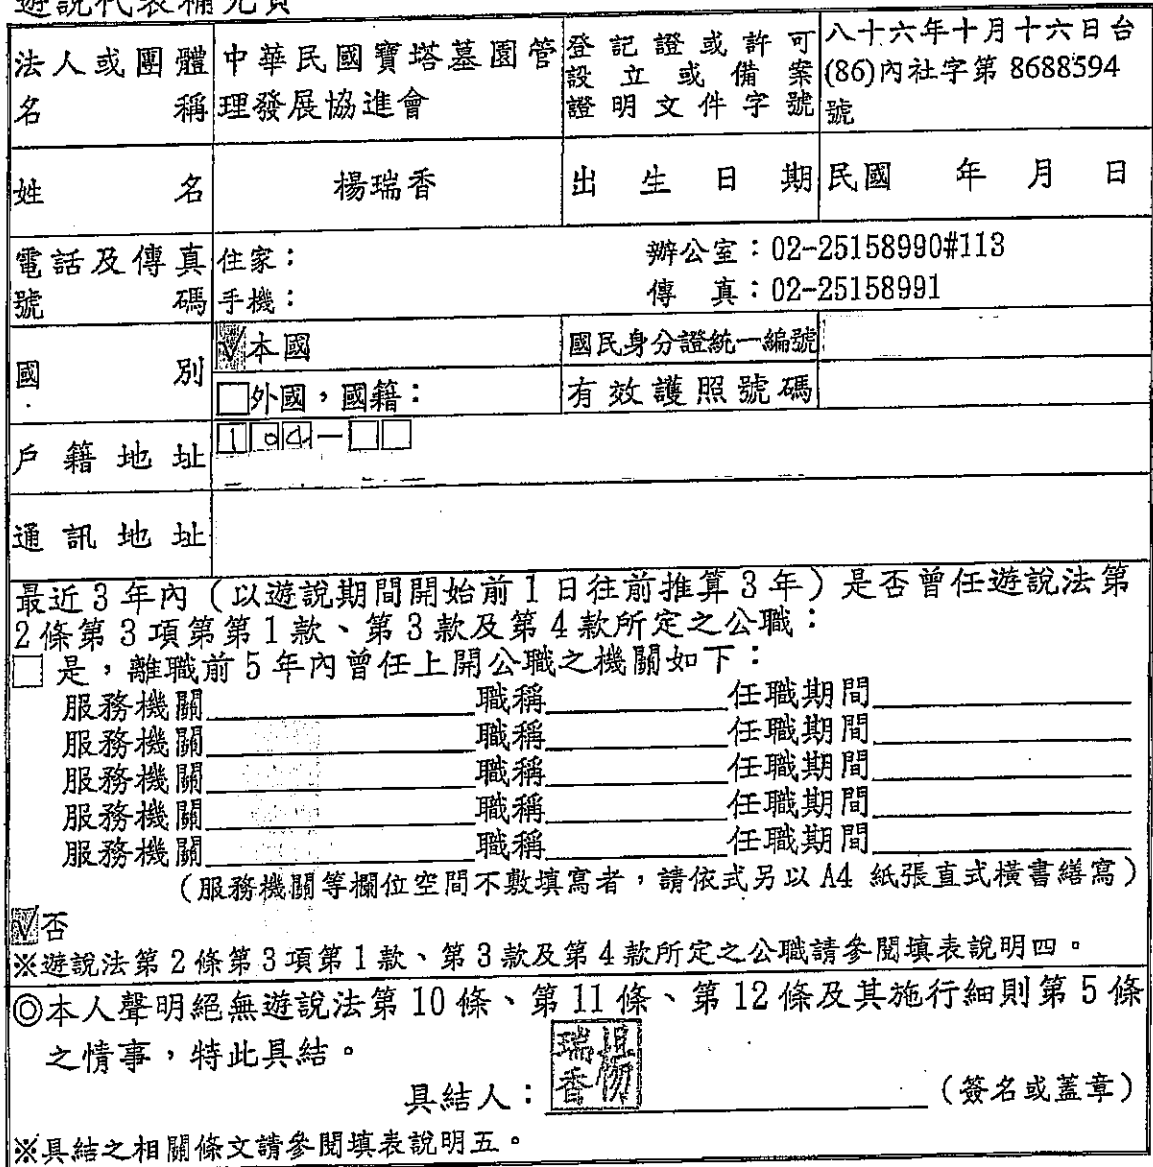 遊說代表補充頁
法人或團體名稱 中華民國寶塔墓園管理發展協進會 登記證或許可設立或備案證明文件字號 八十六年十月十六日台(86)內社字第 8688594 號
姓名 楊瑞香 出生日期 民國 年 月 日
電話及傳真號碼 住家： 辦公室：02-25158990#113
手機： 傳 真：02-25158991
國別 V本國 國民身分證統一編號
□外國，國籍： 有效護照號碼
戶籍地址 104-□□
通訊地址
最近3年內（以遊說期間開始前1日往前推算3年）是否曾任遊說法第
2條第3項第第1款、第3款及第4款所定之公職：
□是，離職前5年內曾任上開公職之機關如下：
服務機關 職稱 任職期間
服務機關 職稱 任職期間
服務機關 職稱 任職期間
服務機關 職稱 任職期間
服務機關 職稱 任職期間
（服務機關等欄位空間不敷填寫者，請依式另以A4 紙張直式橫書繕寫）
V否
※遊說法第2條第3項第1款、第3款及第4款所定之公職請參閱填表說明四。
◎本人聲明絕無遊說法第10條、第11條、第12條及其施行細則第5條
之情事，特此具結。
具結人：楊瑞香（簽名或蓋章）
※具結之相關條文請參閱填表說明五。